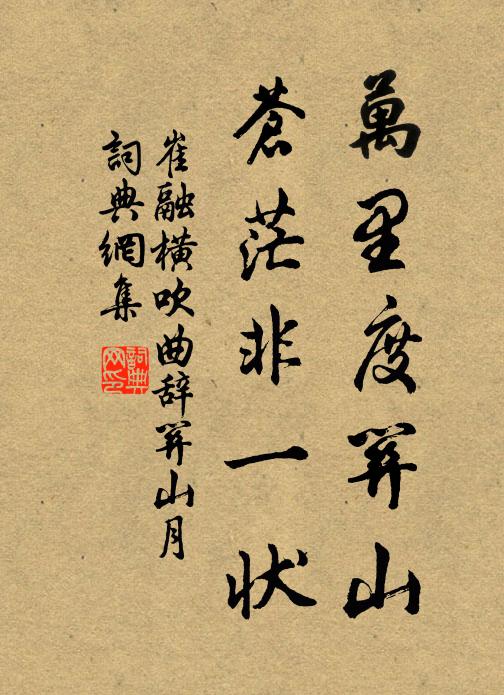 萬里度関山
蒼茫非一状
崔融橫吹曲辞関山月
詞典網集
詞典網印